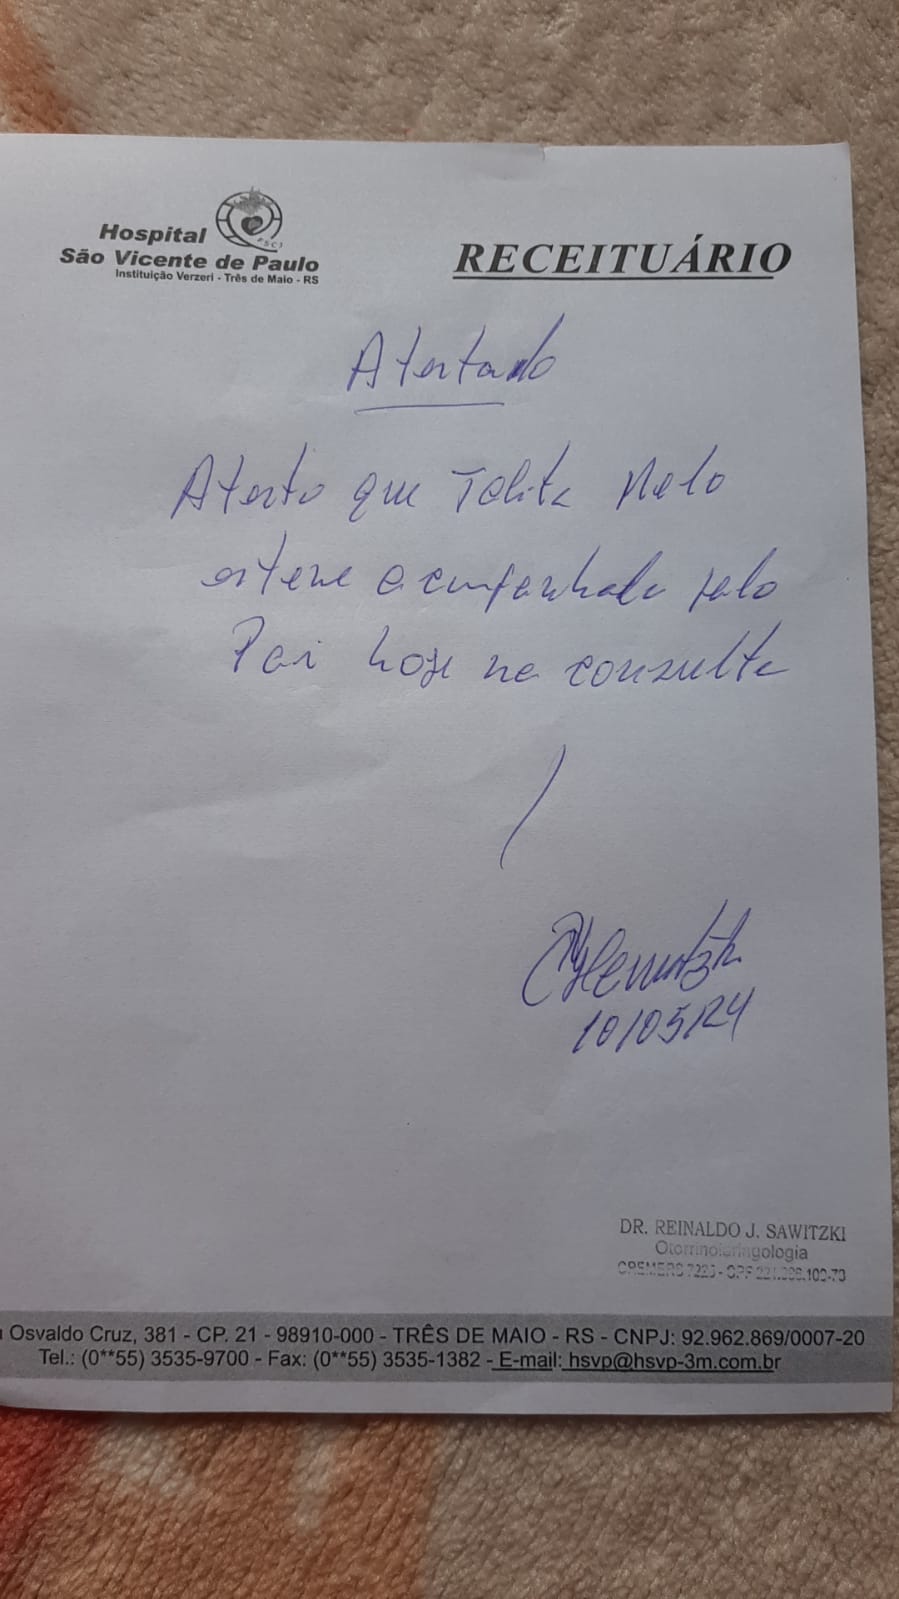 Hospital
São Vicente de Paulo
Instituição Verzeri - Três de Maio - RS
RECEITUÁRIO
Atestado
Atesto que Talita Melo
esteve acompanhada pelo
Pai hoje na consulta
10/05/24
DR. REINALDO J. SAWITZKI
Otorrinolaringologia
CREMERS
Osvaldo Cruz, 381 - CP. 21 - 98910-000 - TRÊS DE MAIO - RS - CNPJ: 92.962.869/0007-20
Tel.: (0**55) 3535-9700 - Fax: (0**55) 3535-1382 - E-mail: hsvp@hsvp-3m.com.br